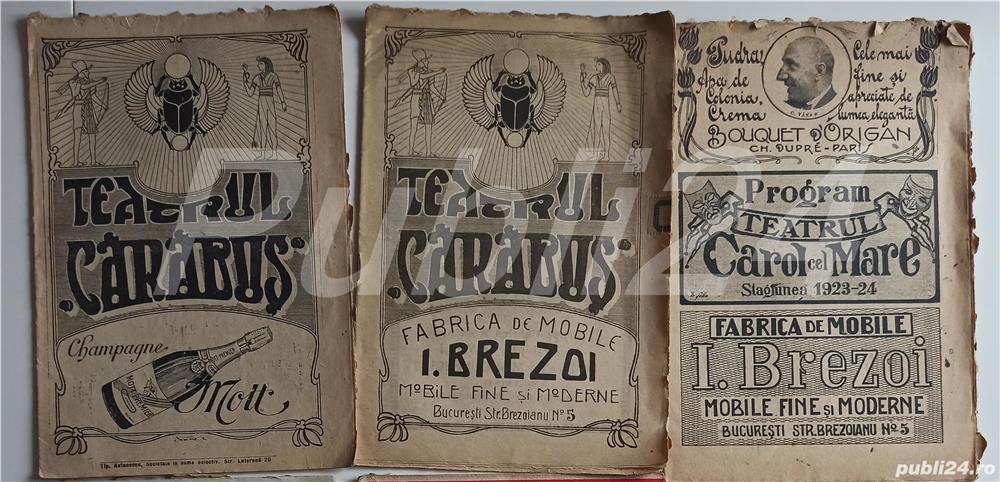 TEATRUL
„CĂRĂBUȘ"
Champagne
Mott
Tip. Antonescu, Societate în nume colectiv, Str. Laterană 20
TEATRUL
„CĂRĂBUȘ"
FABRICA DE MOBILE
I. BREZOI
MOBILE FINE și MODERNE
București Str. Brezoianu No 5
Pudra,
Apa de
Colonia,
Crema
Cele mai
fine și
apreciate de
lumea elegantă
BOUQUET D'ORIGAN
CH. DUPRÉ-PARIS
Program
TEATRUL
Carol cel Mare
Stagiunea 1923-24
FABRICA DE MOBILE
I. Brezoi
MOBILE FINE și MODERNE
BUCUREȘTI STR. BREZOIANU No 5
Publi24
publi24.ro